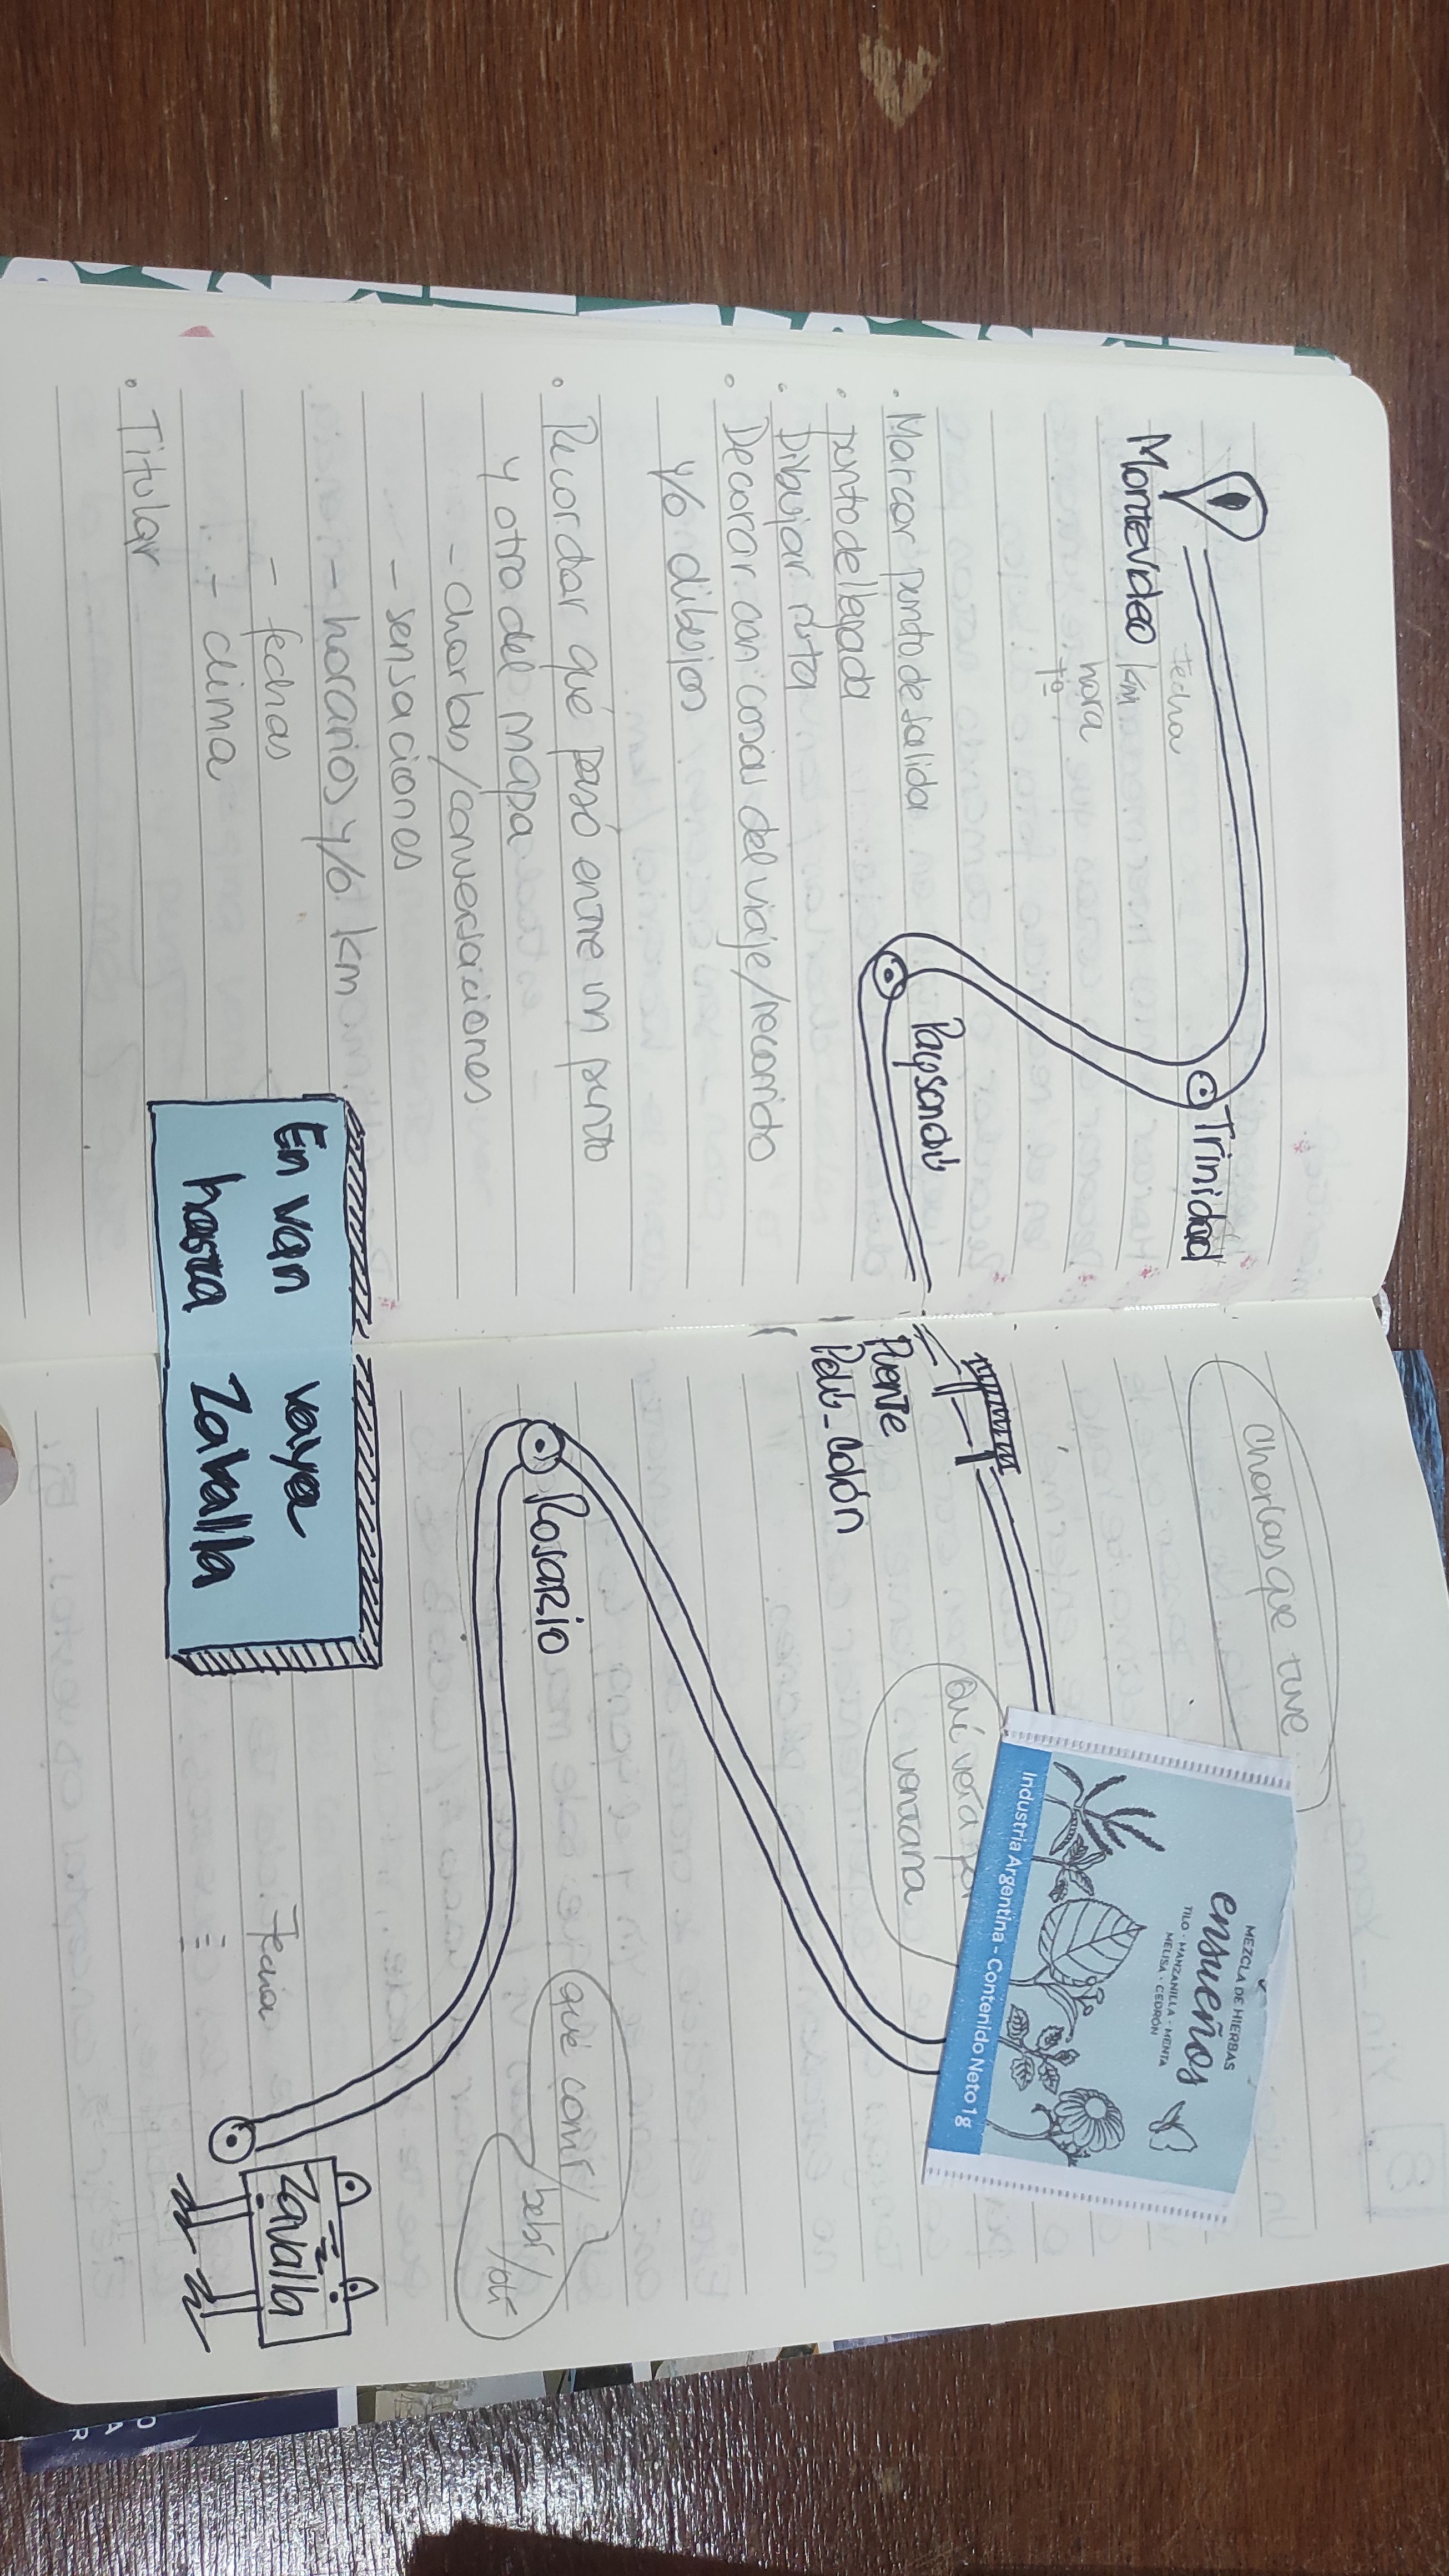 Montevideo
fecha
km
hora
tº
Trinidad
Paysandú
• Marcar punto de salida
• punto de llegada
• Dibujar ruta
• Decorar con cosas del viaje/recorrido
y/o dibujos
• Recordar qué pasó entre un punto
y otro del mapa
- charlas/conversaciones
- sensaciones
- horarios y/o km
- fechas
- clima
• Titular
En van vaya
hasta Zaballa
Charlas que tuve
Puente
Pdú-Colón
qué veía por
ventana
MEZCLA DE HIERBAS
ensueños
TILO · MANZANILLA · MENTA
MELISA · CEDRÓN
Industria Argentina - Contenido Neto 1 g
Rosario
qué comí/
bebí
/olí
Fecha
Zavalla